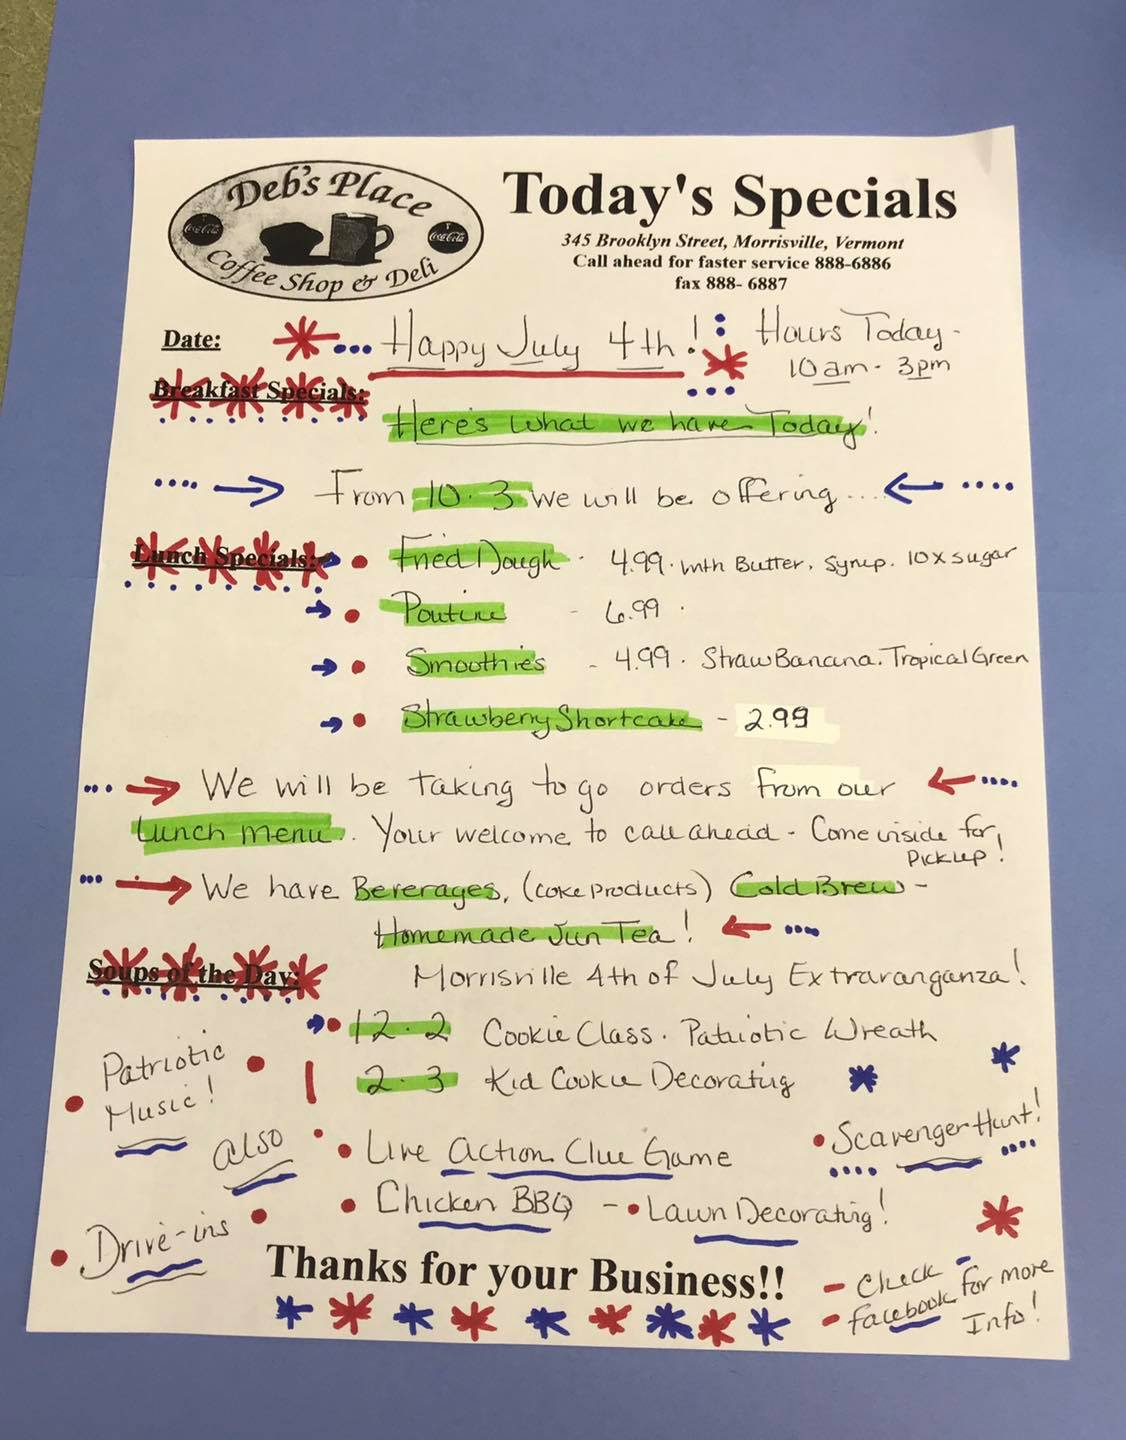 Deb's Place
Coca-Cola
Coca-Cola
Coffee Shop & Deli
Today's Specials
345 Brooklyn Street, Morrisville, Vermont
Call ahead for faster service 888-6886
fax 888- 6887
Date:
Happy July 4th!
Hours Today -
10am - 3pm
Breakfast Specials:
Here's what we have Today!
From 10-3 we will be offering....
Lunch Specials:
Fried Dough - 4.99. with Butter, Syrup. 10x sugar
Poutine - 6.99.
Smoothies - 4.99. StrawBanana. Tropical Green
Strawberry Shortcake - 2.99
We will be taking to go orders from our
Lunch menu. Your welcome to call ahead - Come inside for
Pickup!
We have Beverages, (coke products) Cold Brew -
Homemade Sun Tea!
Soups of the Day:
Morrisville 4th of July Extravanganza!
12-2 Cookie Class. Patriotic Wreath
2-3 Kid Cookie Decorating
Patriotic
Music!
Also
Live Action Clue Game
Scavenger Hunt!
Chicken BBQ - Lawn Decorating!
Drive-ins
Thanks for your Business!!
- Check
- Facebook for more
Info!